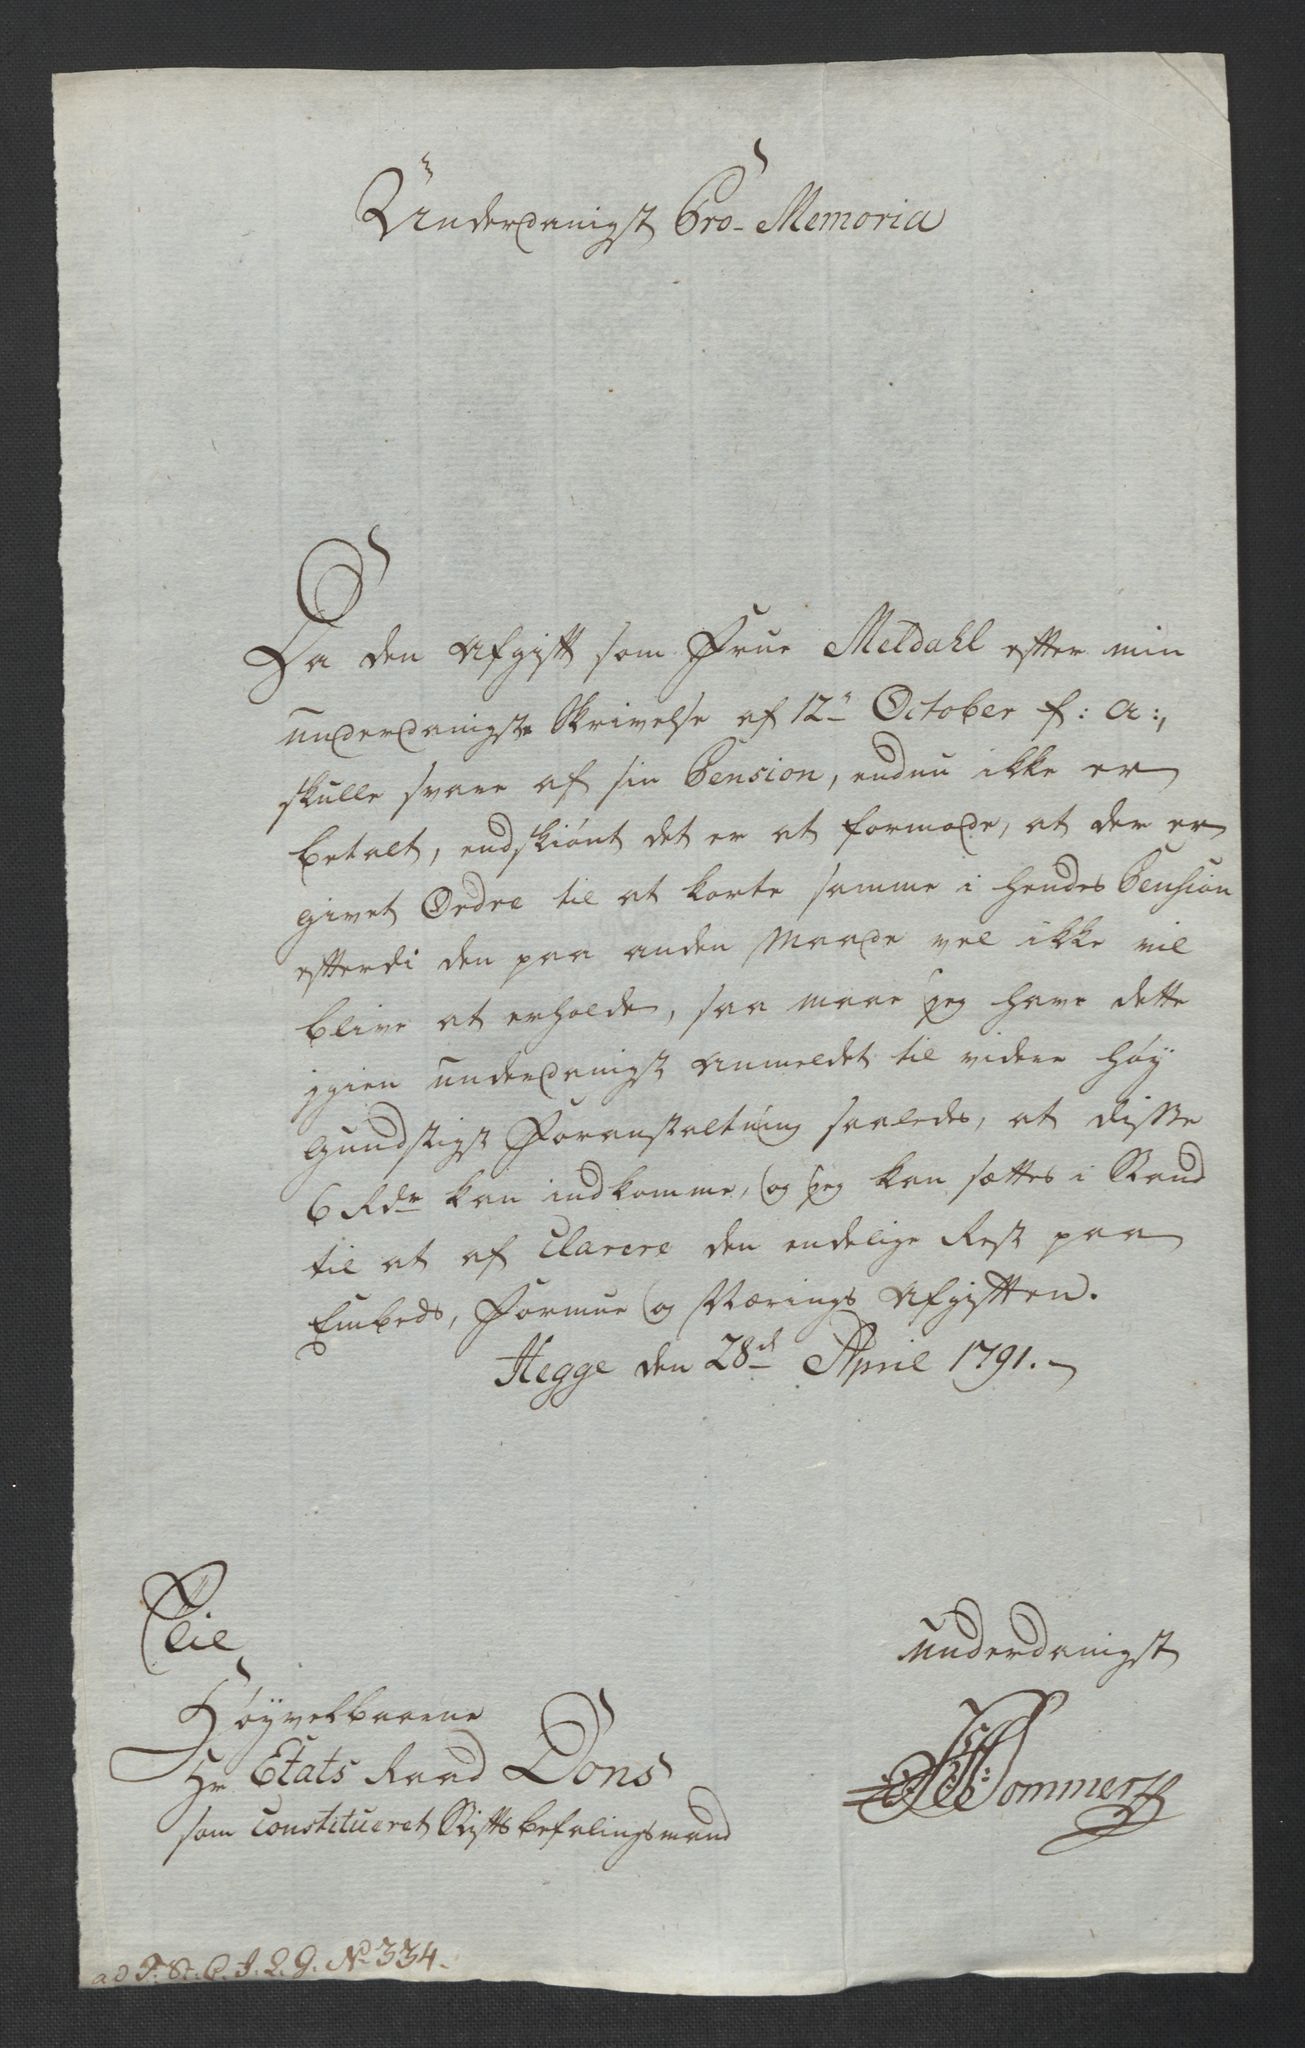 Underdanigst Pro Memoria
Da den Afgift som Frue Meldahl efter min
underdanigste Skrivelse af 12te October f: a:,
skulle svare af sin Pension, endnu ikke er
betalt, endskiønt det er at formode, at der er
givet Ordre til at korte samme i hendes Pension
efterdi den paa anden Maade vel ikke vil
blive at erholde, saa maae jeg have dette
igien underdanigst Anmeldet til videre høy
gundstigst Foranstaltning saaledes, at disse
6 Rdr kan indkomme, og jeg kan sættes i Stand
til at af Clarere den endelige Rest paa
Embeds, Formue og Nærings Afgiften.
Hegge den 28d April 1791.
Til
Høyvelbaarne
Hr Etats Raad Dons
som Constitueret Stiftsbefalingsmand
underdanigst
Sommer
ad F. St. C. J. L. G. No 334.